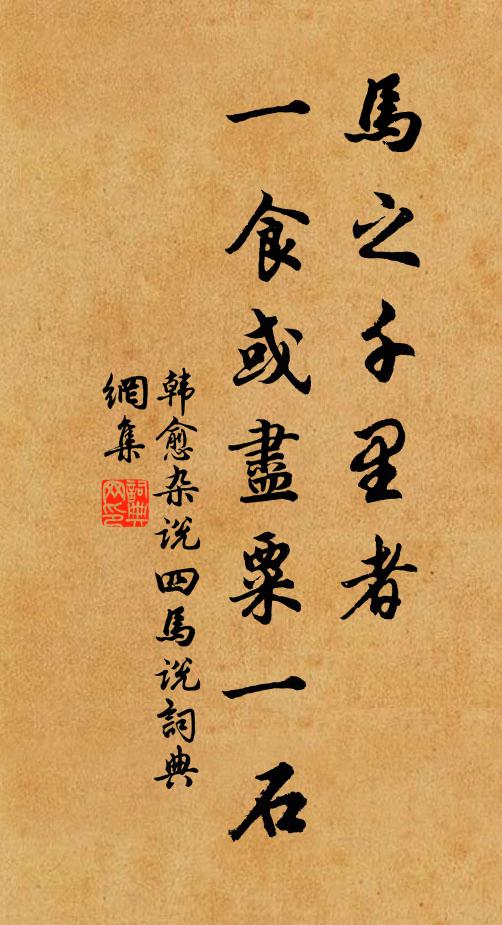 馬之千里者
一食或盡粟一石
韩愈杂说四馬说詞典
網集
詞典
网印